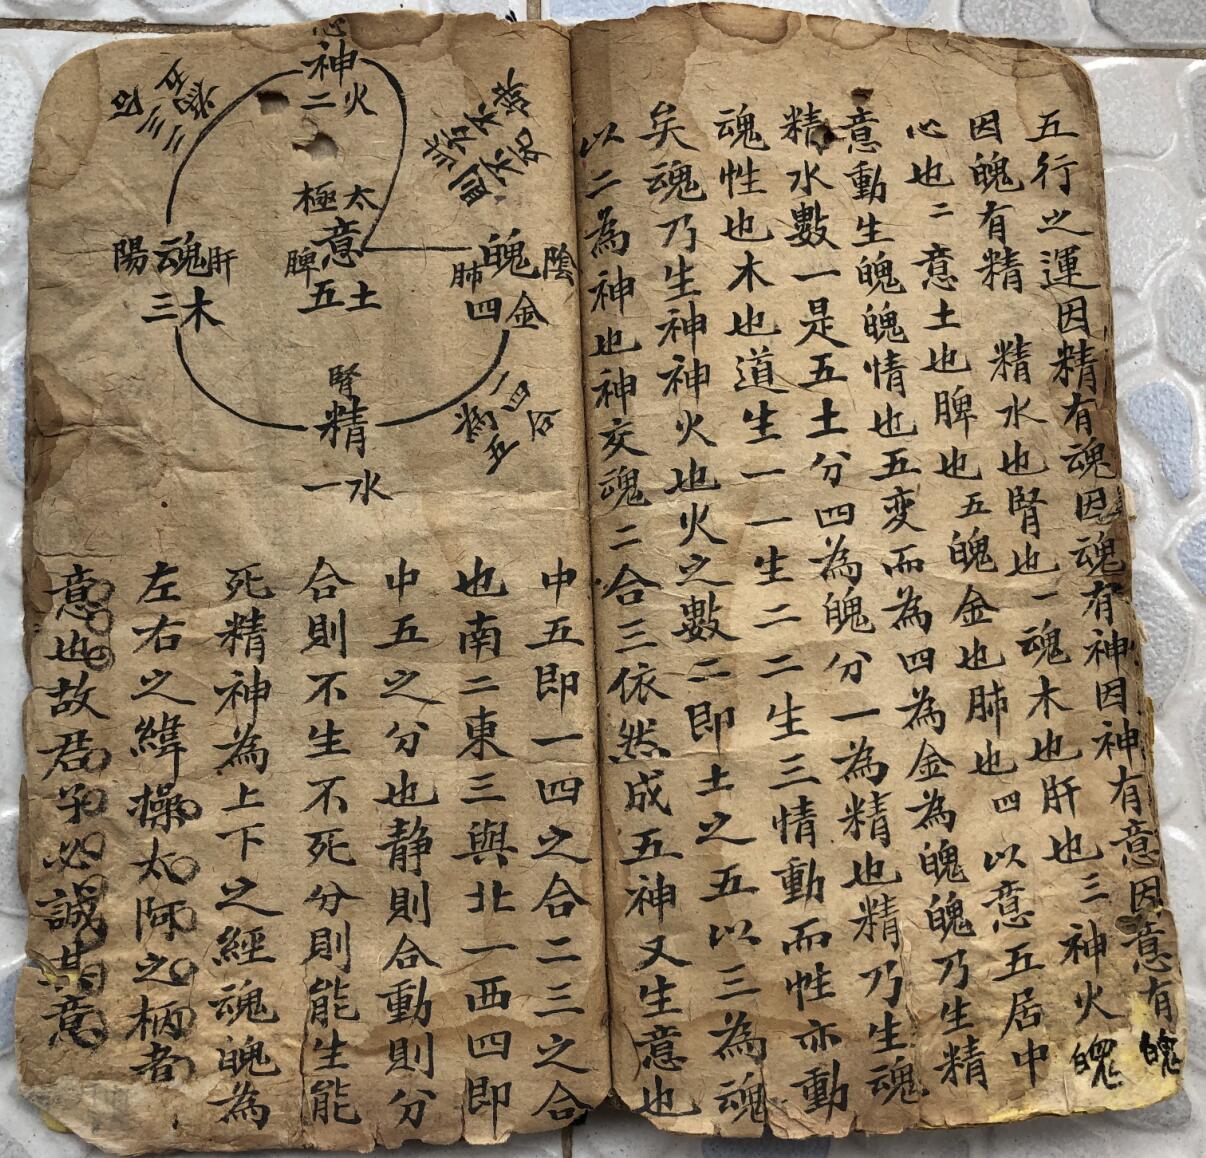 五行之運因精有魂因魂有神因神有意因意有魄
因魄有精 精水也腎也一魂木也肝也三神火魄
心也二意土也脾也五魄金也肺也四以意五居中
意動生魄魄情也五变而為四為金為魄魄乃生精
精水數一是五土分四為魄分一為精也精乃生魂
魂性也木也道生一一生二二生三情動而性亦動
矣魂乃生神神火也火之數二即土之五以三為魂
以二為神也神交魂二合三依然成五神又生意也
心
神
火二
太極
意
脾
土五
魄
肺
陰
金四
魂
肝
陽
木三
腎
精
水一
二三合為五
一四合為五
則不死
中五即一四之合二三之合
也南二東三與北一西四即
中五之分也静則合動則分
合則不生不死分則能生能
死精神為上下之經魂魄為
左右之緯操太阿之柄者
意也故君子必誠其意